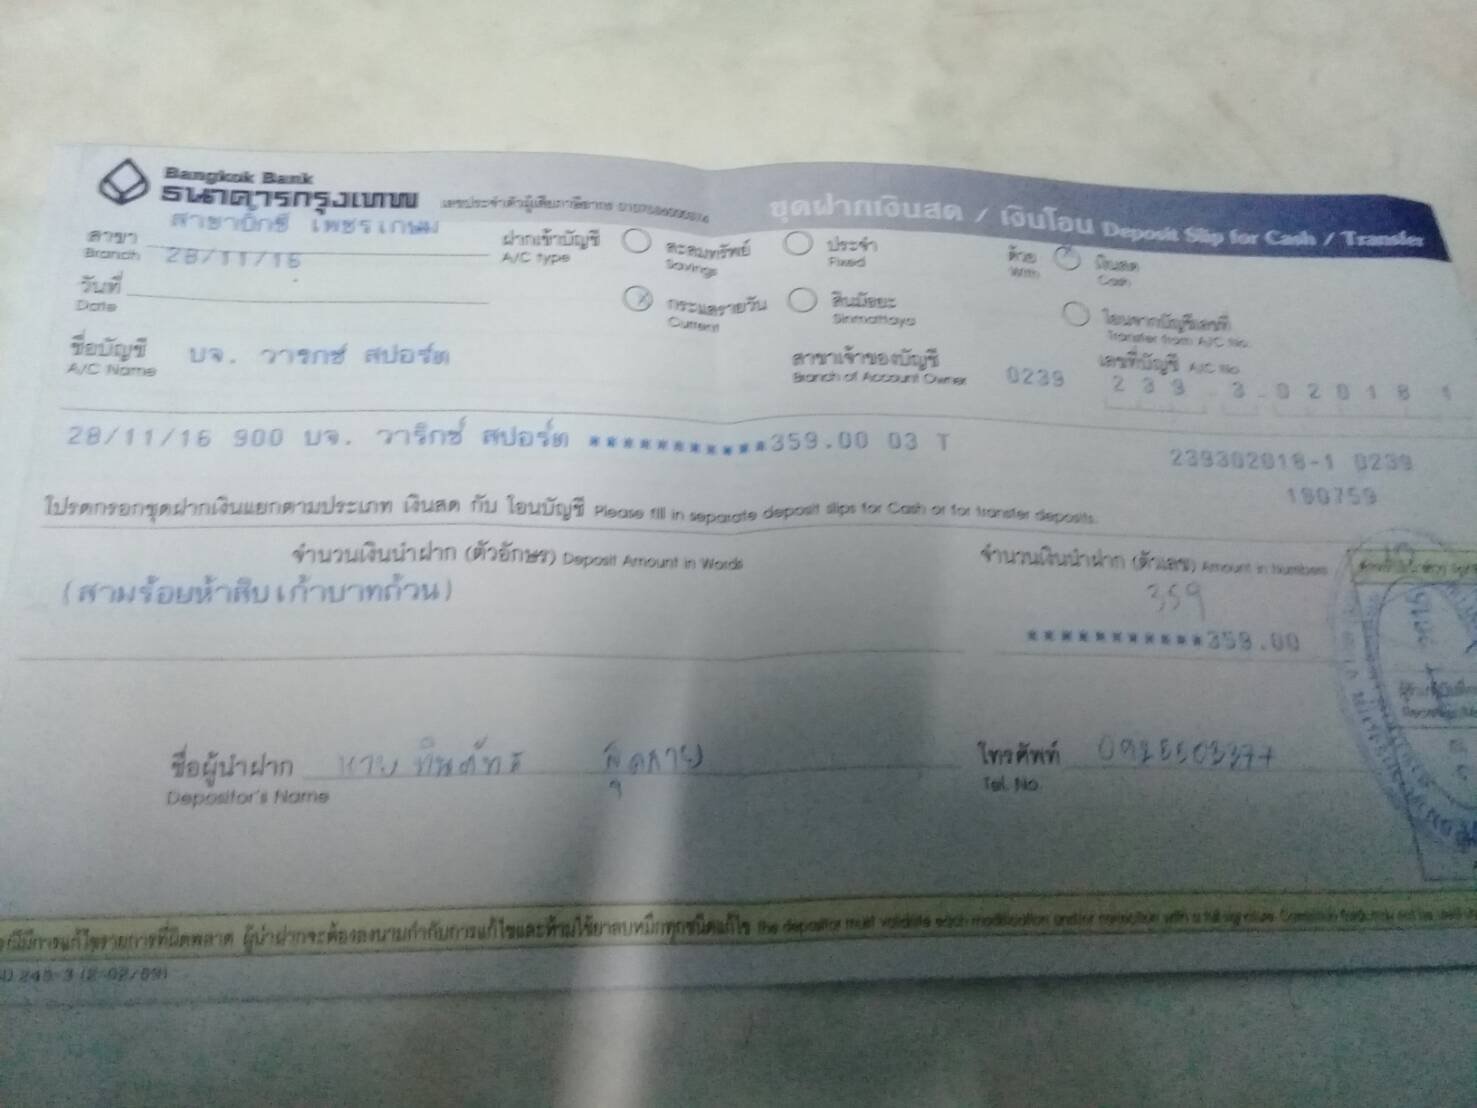 Bangkok Bank
ธนาคารกรุงเทพ
เลขประจำตัวผู้เสียภาษีอากร
ชุดฝากเงินสด / เงินโอน Deposit Slip for Cash / Transfer
สาขา สาขาบิ๊กซี เพชรเกษม
Branch
28/11/16
วันที่
Date
ฝากเข้าบัญชี
A/C type
สะสมทรัพย์
Savings
ประจำ
Fixed
กระแสรายวัน
Current
สินมัธยะ
Sinmattaya
ด้วย
With
เงินสด
Cash
โอนจากบัญชีเลขที่
Transfer from A/C No.
ชื่อบัญชี บจ. วาริกซ์ สปอร์ต
A/C Name
สาขาเจ้าของบัญชี 0239
Branch of Account Owner
เลขที่บัญชี A/C No.
2 3 9 3 0 2 0 1 8 1
28/11/16 900 บจ. วาริกซ์ สปอร์ต ***********359.00 03 T
239302018-1 0239
180759
โปรดกรอกชุดฝากเงินแยกตามประเภท เงินสด กับ โอนบัญชี Please fill in separate deposit slips for Cash or for transfer deposits.
จำนวนเงินนำฝาก (ตัวอักษร) Deposit Amount in Words
จำนวนเงินนำฝาก (ตัวเลข) Amount in Numbers
(สามร้อยห้าสิบเก้าบาทถ้วน)
359
***********359.00
ชื่อผู้นำฝาก นาย
Depositor's Name
โทรศัพท์
Tel. No.
กรณีมีการแก้ไขรายการที่ผิดพลาด ผู้นำฝากจะต้องลงนามกำกับการแก้ไขและห้ามใช้ยาลบหมึกทุกชนิดแก้ไข The depositor must validate each modification and/or correction with a full signature.